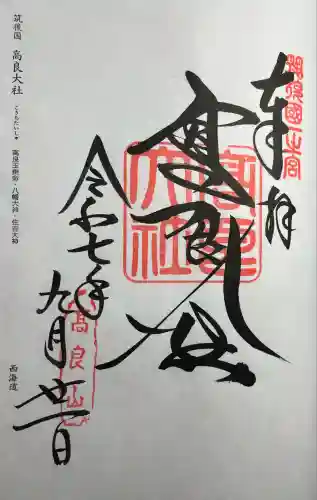 奉拝
筑後國一之宮
高良大社
高良大社
令和七年
九月廿一日
高良山
筑後国 高良大社 こうらたいしゃ 高良玉垂命・八幡大神・住吉大神
西海道